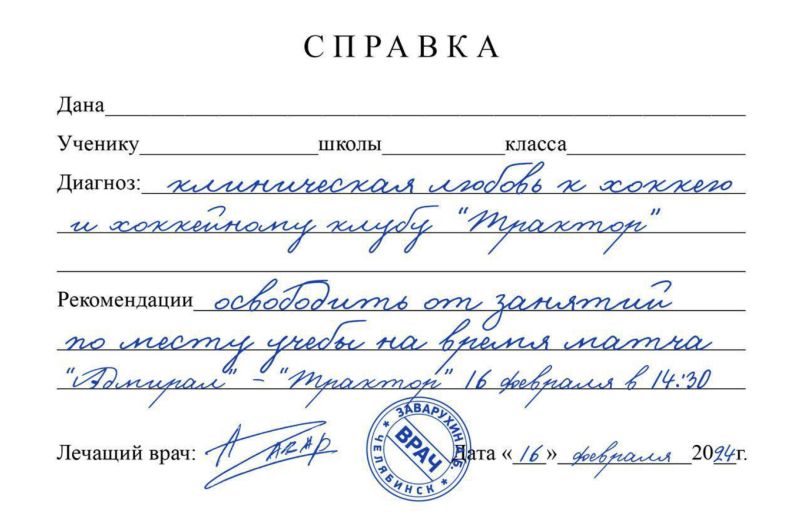 СПРАВКА
Дана
Ученику школы класса
Диагноз: клиническая любовь к хоккею
и хоккейному клубу "Трактор"
Рекомендации освободить от занятий
по месту учебы на время матча
"Адмирал" - "Трактор" 16 февраля в 14:30
Лечащий врач: Дата «16» февраля 2024г.
ЗАВАРУХИН Н.Б.
ВРАЧ
ЧЕЛЯБИНСК